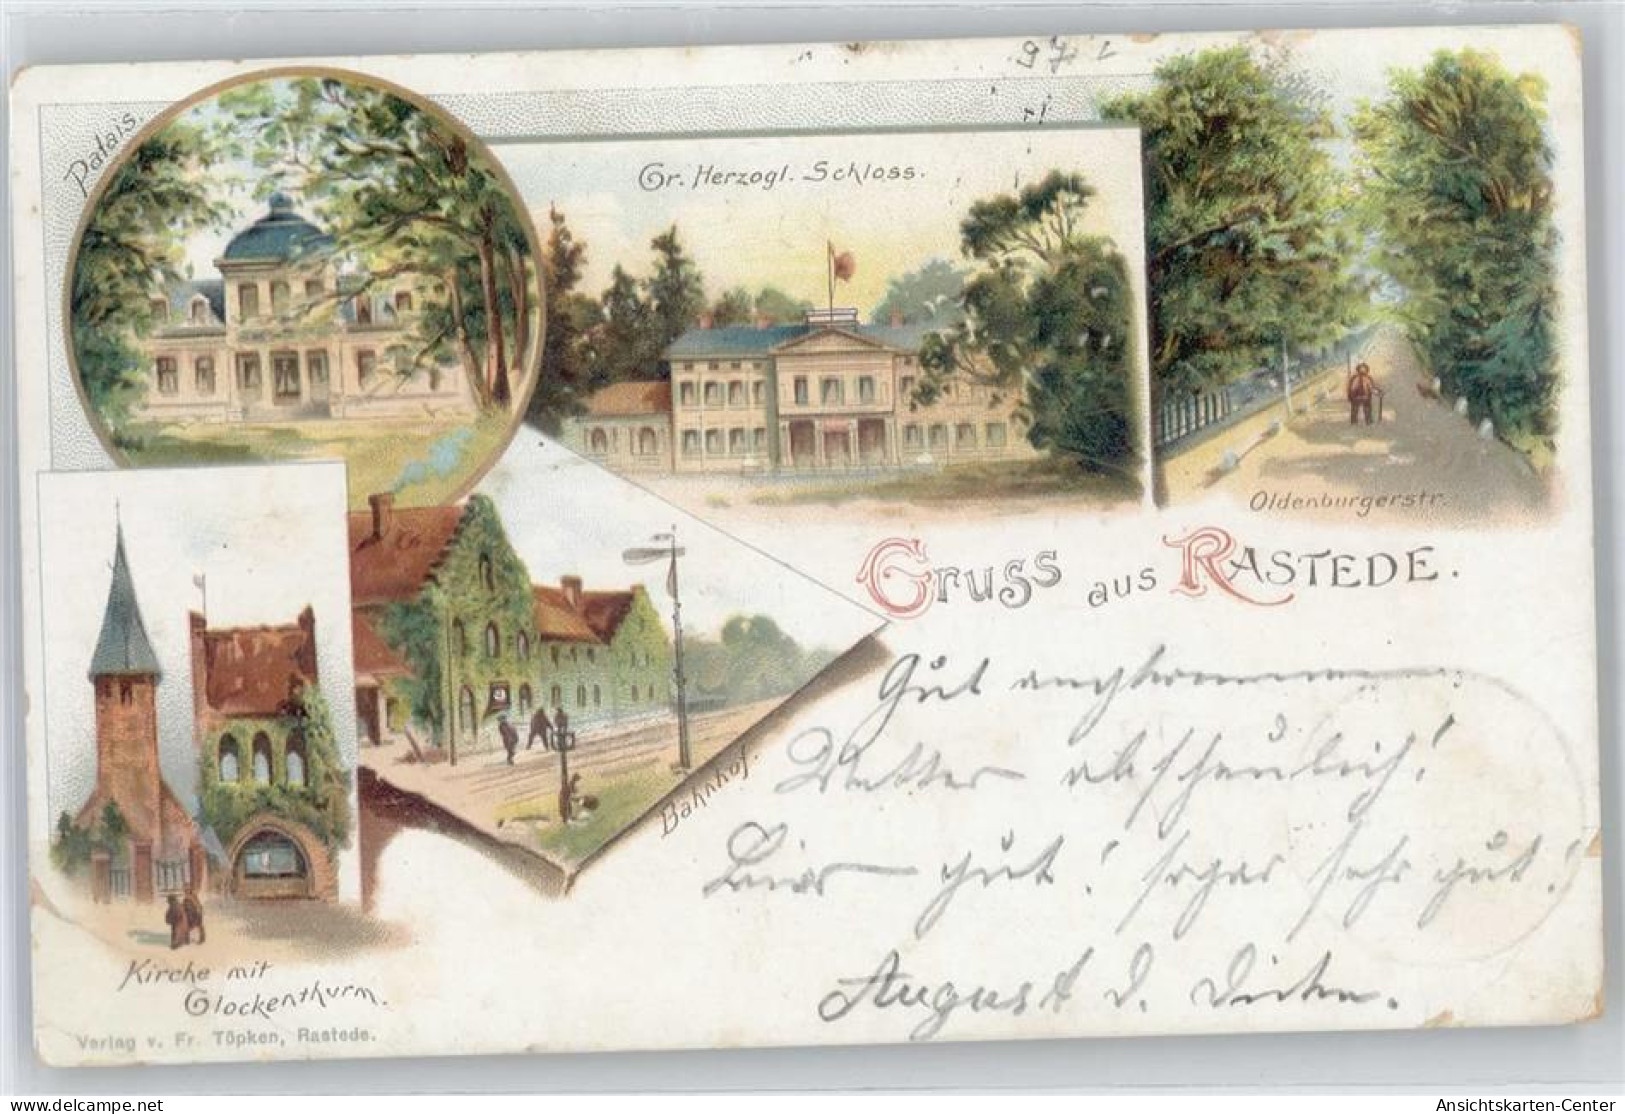 97
Palais.
Gr. Herzogl. Schloss.
Oldenburgerstr.
Gruss aus RASTEDE.
Gut angekommen.
Wetter abscheulich!
Bier gut! sogar sehr gut!
August d. Dicke.
Bahnhof.
Kirche mit
Glockenthurm.
Verlag v. Fr. Töpken, Rastede.
delcampe.net
Ansichtskarten-Center